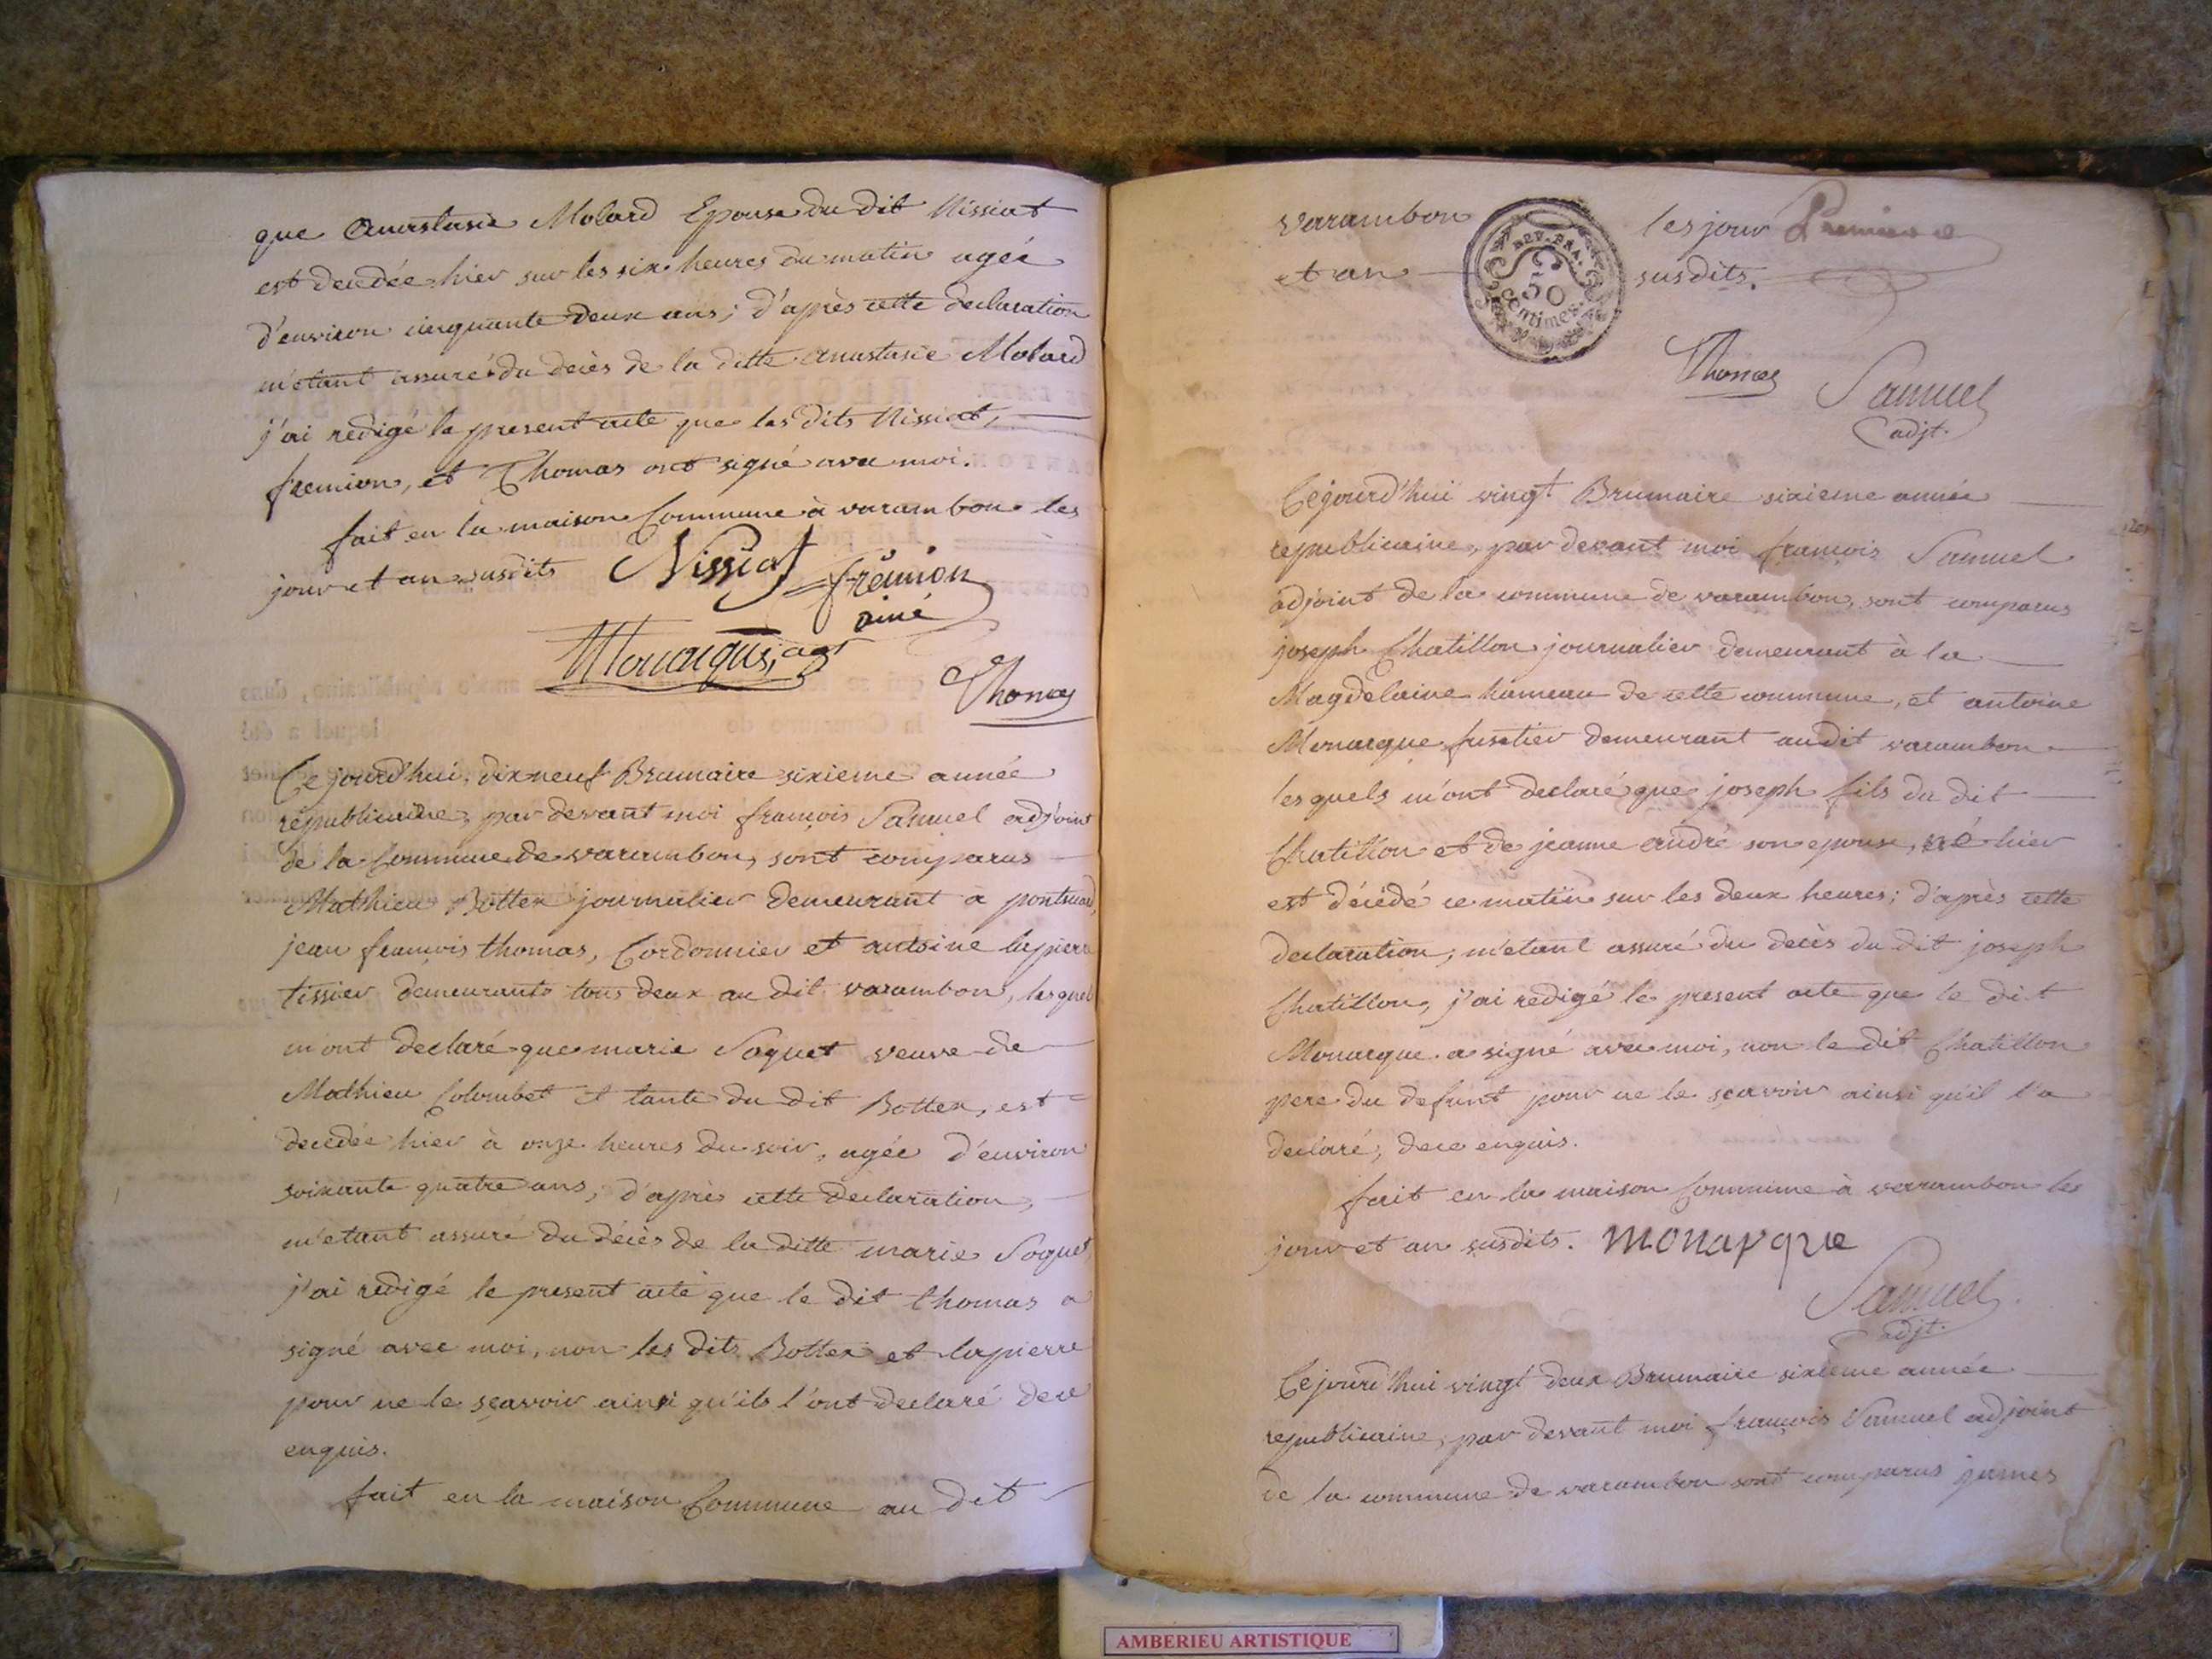 que Anastasie Molard Epouse du dit Nissiat
est decedée hier sur les six heures du matin agée
d'environ cinquante deux ans; d'après cette declaration
m'etant assuré du decès de la ditte anastasie Molard
j'ai redigé le present acte que les dits Nissiat,
fremion, et Thomas ont signé avec moi.
fait en la maison Commune à varambon les
jour et an susdits Nissiat fremion
ainé
Monarque, agt
Thomas
Cejourd'hui, dix neuf Brumaire sixieme année
republicaine, par devant moi françois Samuel adjoint
de la Commune de varambon, sont comparus
Mathieu Bottex journalier demeurant a
jean françois thomas, Cordonnier et antoine lapierre
tissier demeurants tous deux au dit varambon, lesquels
m'ont declaré que marie Soquet veuve de
Mathieu Colombet et tante du dit Bottex, est
decedée hier à onze heures du soir, agée d'environ
soixante quatre ans; d'après cette declaration,
m'etant assuré du décès de la ditte marie Soquet,
j'ai redigé le present acte que le dit thomas a
signé avec moi, non les dits Bottex et lapierre
pour ne le sçavoir ainsi qu'ils l'ont declaré de ce
enquis.
fait en la maison Commune au dit
varambon les jour
et an susdits.
REP. FRA.
50
Centimes
Thomas
Samuel
adjt.
Cejourd'hui vingt Brumaire sixieme année
republicaine, par devant moi françois Samuel
adjoint de la commune de varambon, sont comparus
joseph Chatillon journalier demeurant à la
Magdelaine hameau de cette commune, et antoine
Monarque demeurant audit varambon
lesquels m'ont declaré que joseph fils du dit
Chatillon et de jeanne andré son epouse, né hier
est décédé ce matin sur les deux heures; d'après cette
declaration, m'etant assuré du decès du dit joseph
Chatillon, j'ai redigé le present acte que le dit
Monarque a signé avec moi, non le dit Chatillon
pere du defunt pour ne le sçavoir ainsi qu'il l'a
declaré, de ce enquis.
fait en la maison Commune à varambon les
jour et an susdits. monarque
Samuel
adjt.
Cejourd'hui vingt deux Brumaire sixieme année
republicaine, par devant moi françois Samuel adjoint
de la commune de varambon sont comparus james
AMBERIEU ARTISTIQUE